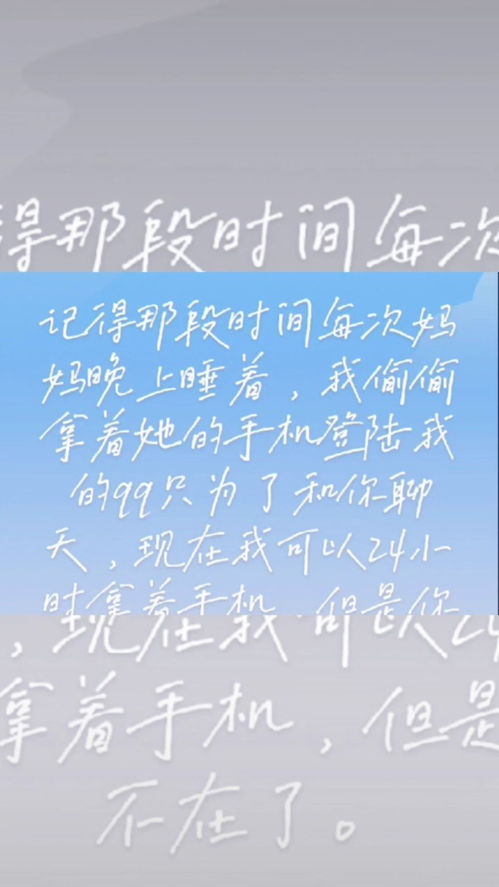 得那段时间每次
记得那段时间每次妈
妈晚上睡着，我偷偷
拿着她的手机登陆我
的99只为了和你聊
天，现在我可以24小
时拿着手机，但是你
，现在我可以24
拿着手机，但是
不在了。